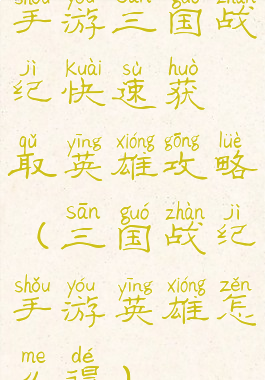 shǒu yóu sān guó zhàn
手游三国战
jì kuài sù huò
纪快速获
qǔ yīng xióng gōng lüè
取英雄攻略
sān guó zhàn jì
（三国战纪
shǒu yóu yīng xióng zěn
手游英雄怎
me dé
么得）